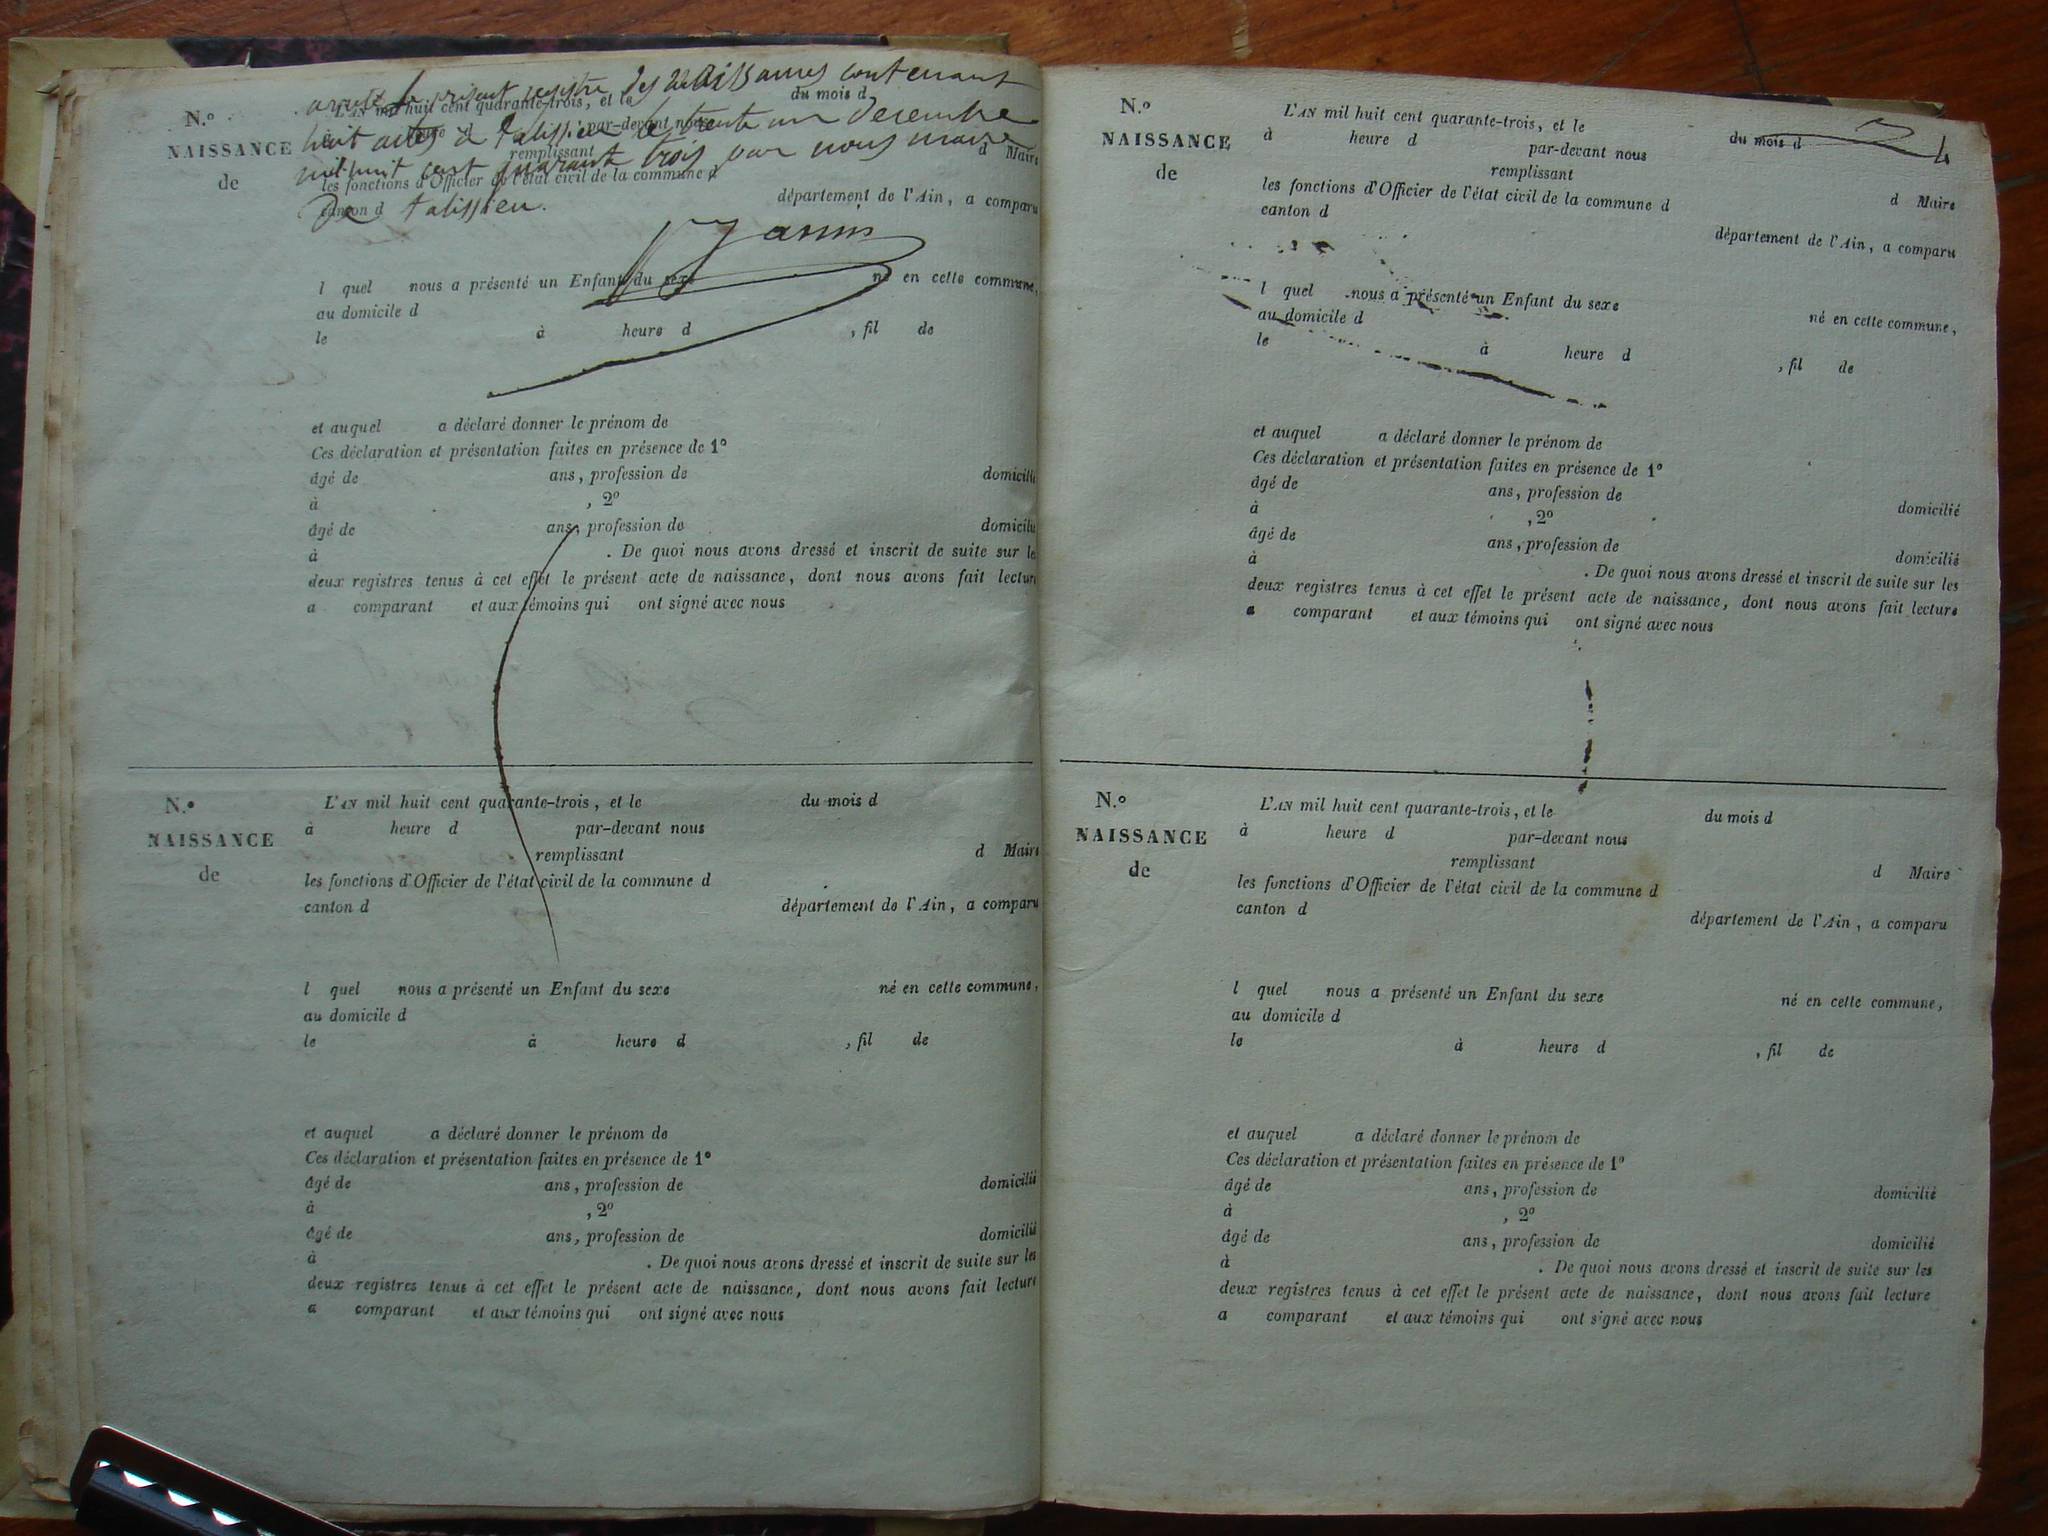 arrêté le présent registre des naissances contenant
huit actes à talissieu le trente un decembre
mil huit cent quarante trois par nous maire
De talissieu.
N.º
NAISSANCE
de
L'AN mil huit cent quarante-trois, et le du mois d
heure d par-devant nous
remplissant d Maire
les fonctions d'Officier de l'état civil de la commune d
canton d département de l'Ain, a comparu
l quel nous a présenté un Enfant du sexe né en cette commune,
au domicile d
le à heure d , fil de
et auquel a déclaré donner le prénom de
Ces déclaration et présentation faites en présence de 1º
âgé de ans, profession de domicilié
à , 2º
âgé de ans, profession de domicilié
à . De quoi nous avons dressé et inscrit de suite sur les
deux registres tenus à cet effet le présent acte de naissance, dont nous avons fait lecture
a comparant et aux témoins qui ont signé avec nous
N.º
NAISSANCE
de
L'AN mil huit cent quarante-trois, et le du mois d
à heure d par-devant nous
remplissant d Maire
les fonctions d'Officier de l'état civil de la commune d
canton d département de l'Ain, a comparu
l quel nous a présenté un Enfant du sexe né en cette commune,
au domicile d
le à heure d , fil de
et auquel a déclaré donner le prénom de
Ces déclaration et présentation faites en présence de 1º
âgé de ans, profession de domicilié
à , 2º
âgé de ans, profession de domicilié
à . De quoi nous avons dressé et inscrit de suite sur les
deux registres tenus à cet effet le présent acte de naissance, dont nous avons fait lecture
a comparant et aux témoins qui ont signé avec nous
N.º
NAISSANCE
de
L'AN mil huit cent quarante-trois, et le du mois d
à heure d par-devant nous
remplissant d Maire
les fonctions d'Officier de l'état civil de la commune d
canton d département de l'Ain, a comparu
l quel nous a présenté un Enfant du sexe né en cette commune,
au domicile d
le à heure d , fil de
et auquel a déclaré donner le prénom de
Ces déclaration et présentation faites en présence de 1º
âgé de ans, profession de domicilié
à , 2º
âgé de ans, profession de domicilié
à . De quoi nous avons dressé et inscrit de suite sur les
deux registres tenus à cet effet le présent acte de naissance, dont nous avons fait lecture
a comparant et aux témoins qui ont signé avec nous
N.º
NAISSANCE
de
L'AN mil huit cent quarante-trois, et le du mois d
à heure d par-devant nous
remplissant d Maire
les fonctions d'Officier de l'état civil de la commune d
canton d département de l'Ain, a comparu
l quel nous a présenté un Enfant du sexe né en cette commune,
au domicile d
le à heure d , fil de
et auquel a déclaré donner le prénom de
Ces déclaration et présentation faites en présence de 1º
âgé de ans, profession de domicilié
à , 2º
âgé de ans, profession de domicilié
à . De quoi nous avons dressé et inscrit de suite sur les
deux registres tenus à cet effet le présent acte de naissance, dont nous avons fait lecture
a comparant et aux témoins qui ont signé avec nous